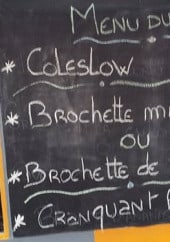 MENU DU
* COLESLOW
* BROCHETTE
OU
* BROCHETTE DE
* CRANQUANT